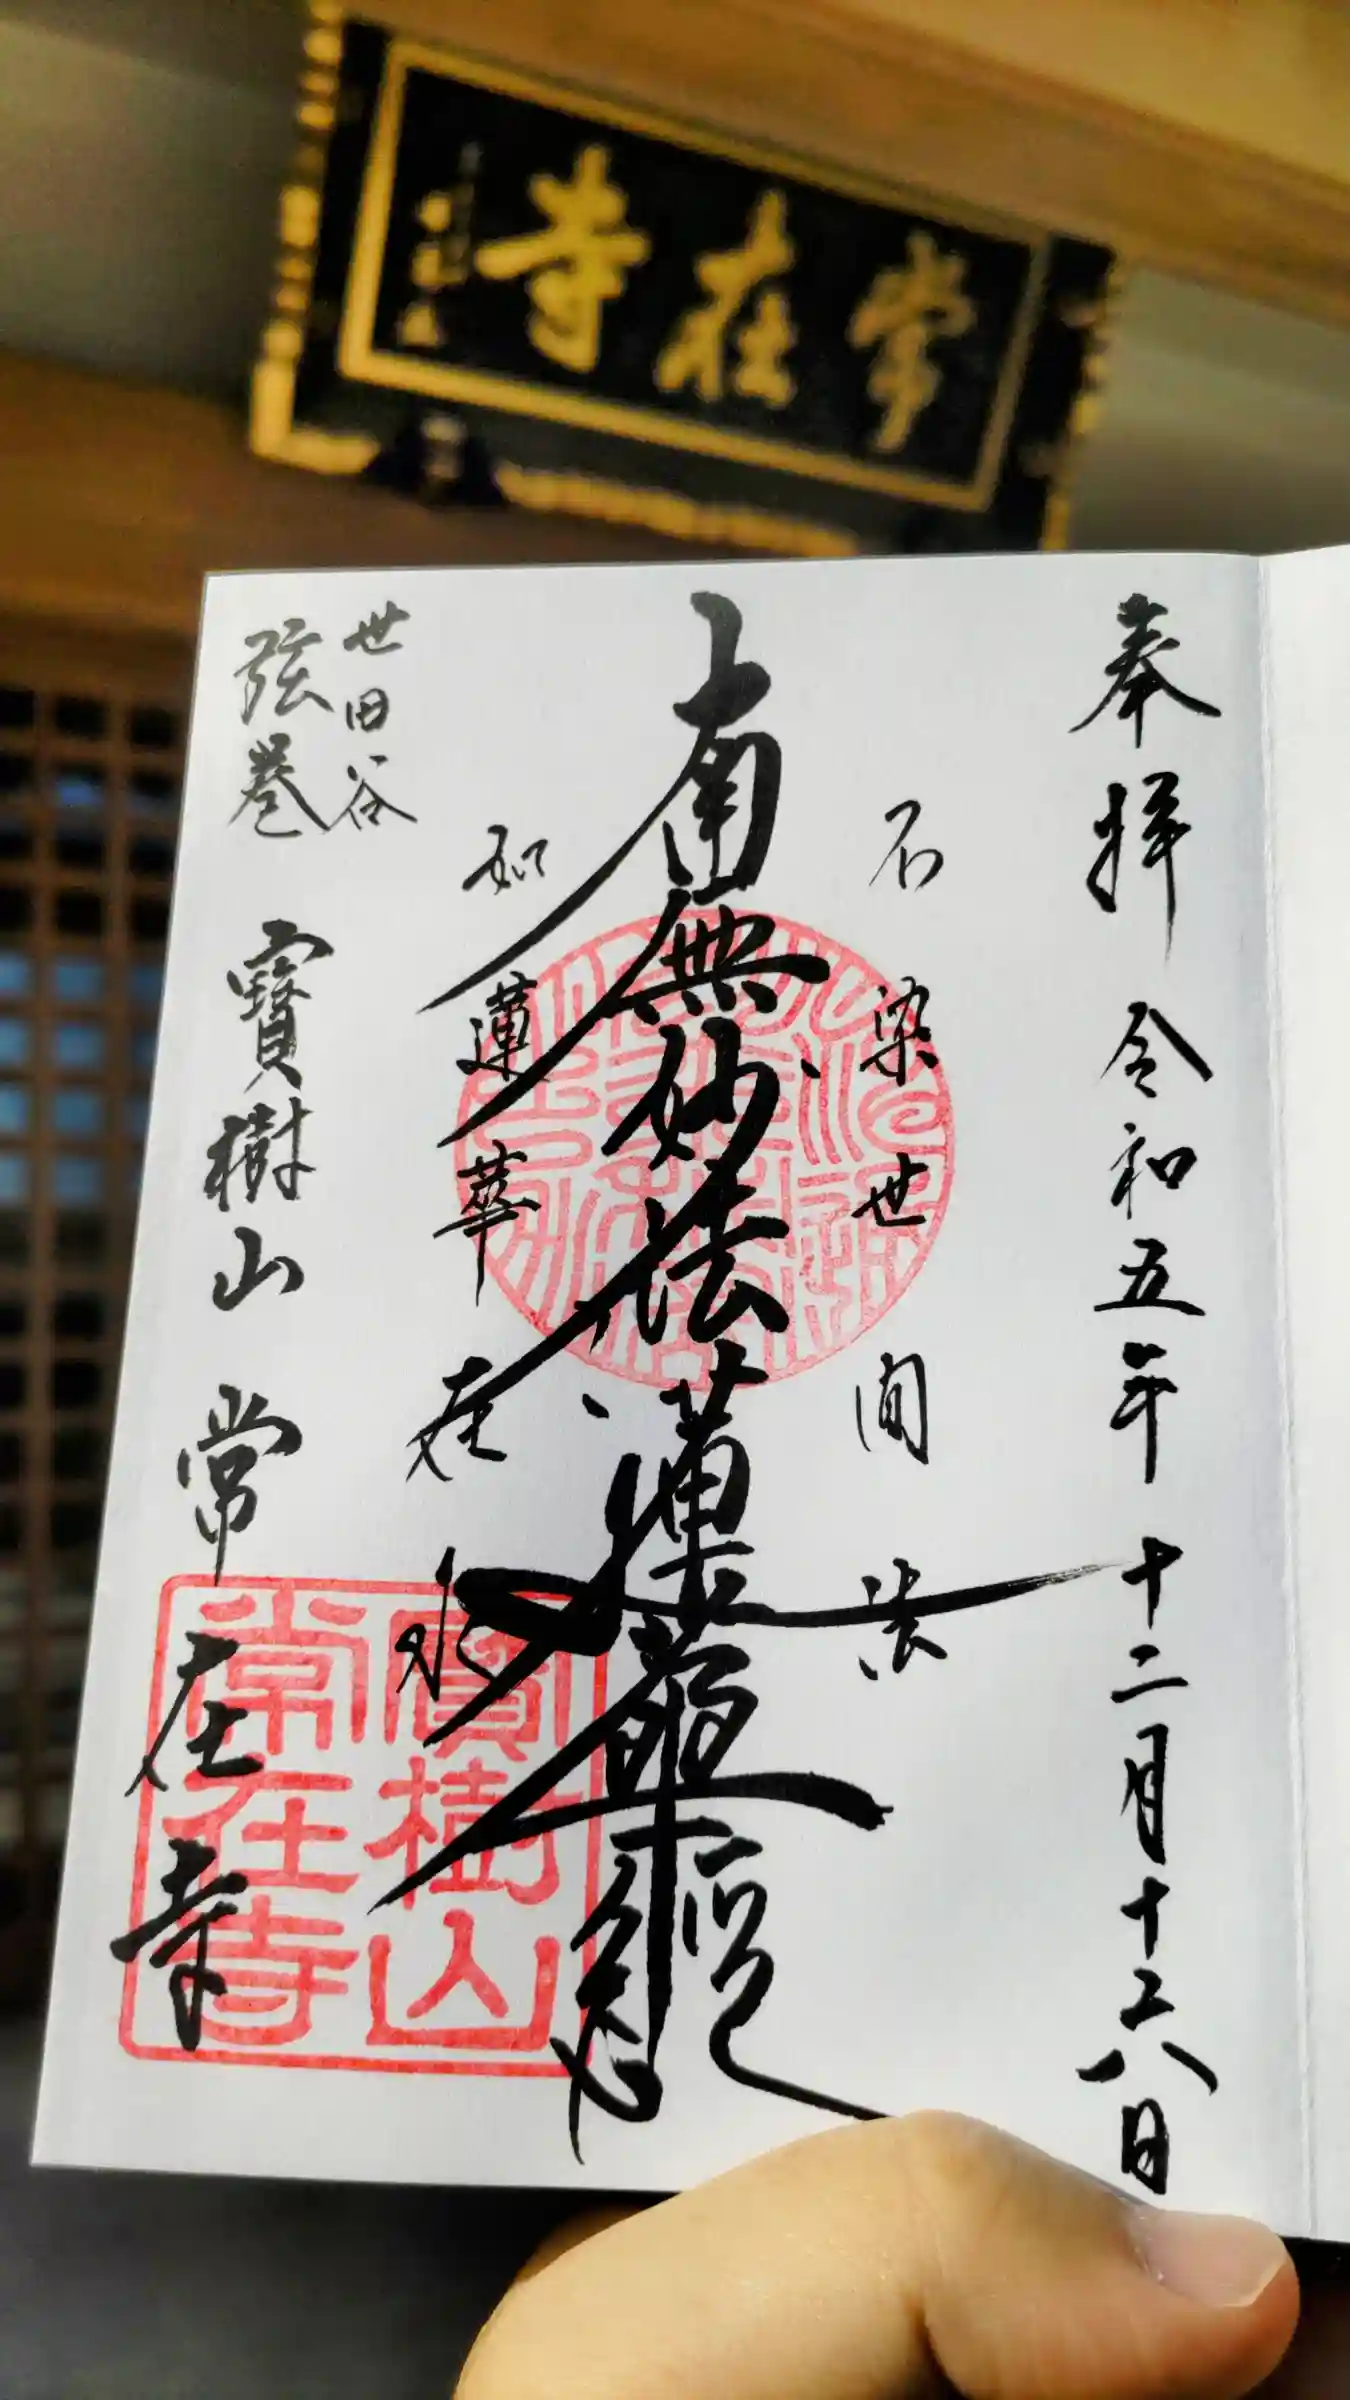 常在寺
奉拝 令和五年十二月十六日
不染世間法
南無妙法蓮華經
如蓮華在水
世田谷
弦巻
寶樹山 常在寺
寶樹山
常在寺